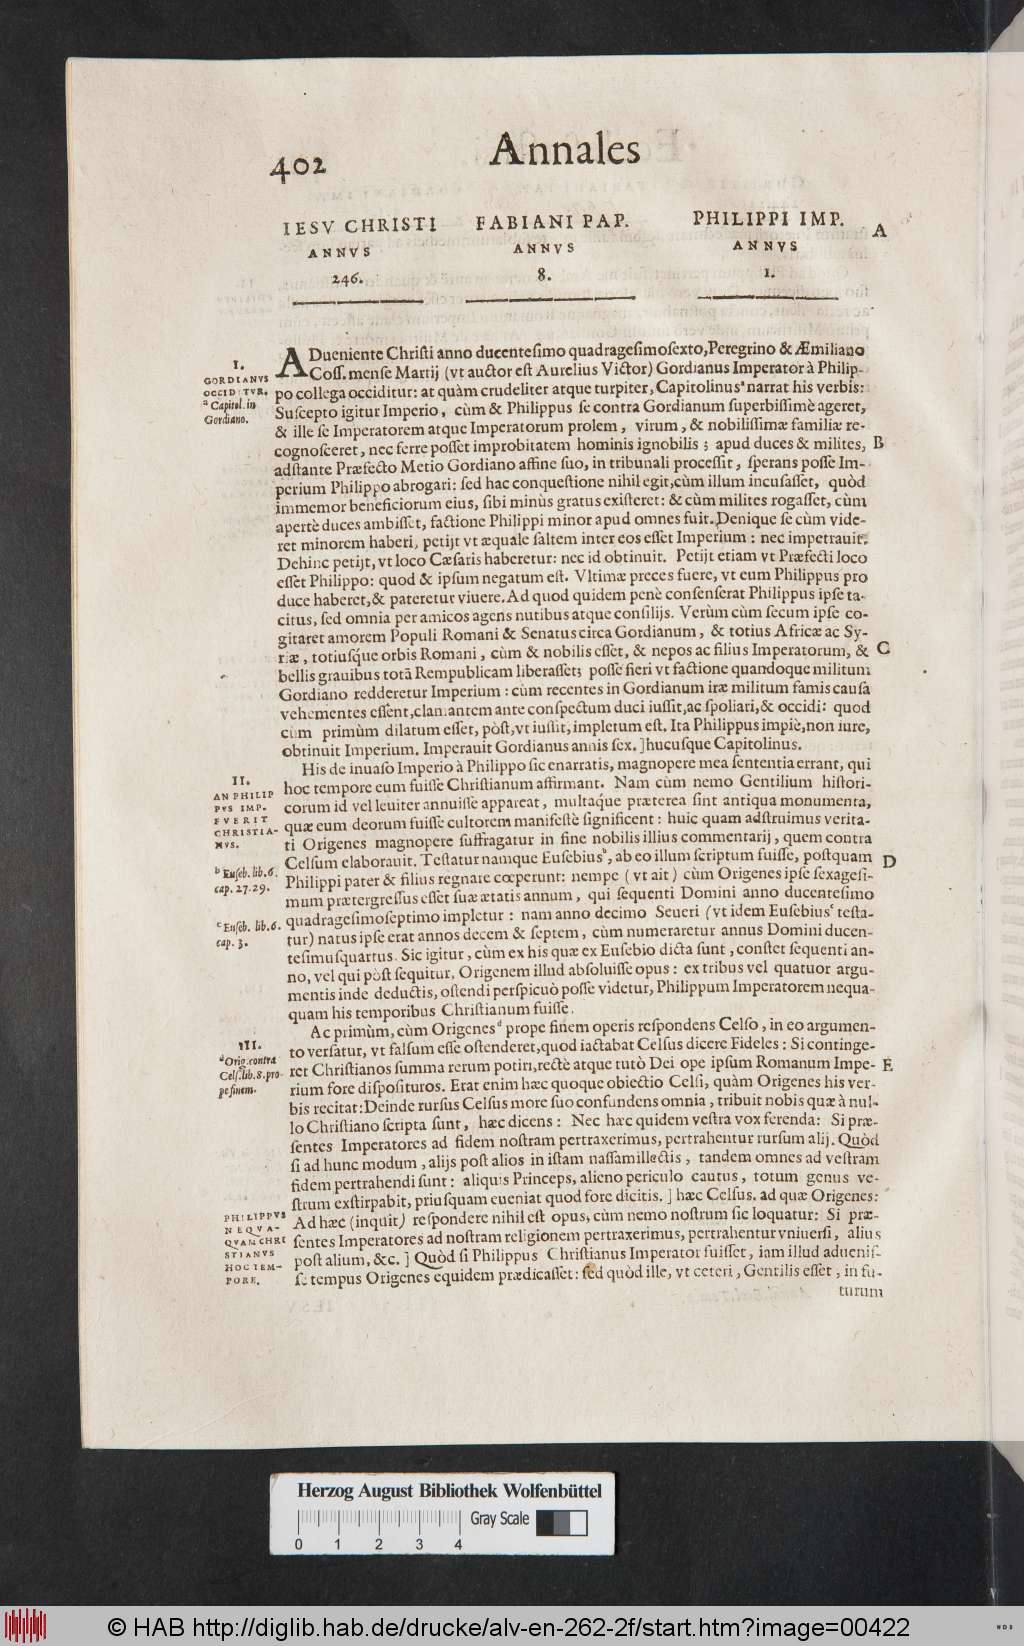 402
Annales
IESV CHRISTI
ANNVS
246.
FABIANI PAP.
ANNVS
8.
PHILIPPI IMP.
ANNVS
1.
A
I.
GORDIANVS
OCCIDITVR.
ᵃ Capitol. in
Gordiano.
ADueniente Chriſti anno ducenteſimo quadrageſimoſexto, Peregrino & Æmiliano
Coſſ. menſe Martij (vt auctor eſt Aurelius Victor) Gordianus Imperator à Philip-
po collega occiditur: at quàm crudeliter atque turpiter, Capitolinusᵃ narrat his verbis:
Suſcepto igitur Imperio, cùm & Philippus ſe contra Gordianum ſuperbiſſimè ageret,
& ille ſe Imperatorem atque Imperatorum prolem, virum, & nobiliſſimæ familiæ re-
cognoſceret, nec ferre poſſet improbitatem hominis ignobilis; apud duces & milites, B
adſtante Præfecto Metio Gordiano affine ſuo, in tribunali proceſſit, ſperans poſſe Im-
perium Philippo abrogari: ſed hac conqueſtione nihil egit, cùm illum incuſaſſet, quòd
immemor beneficiorum eius, ſibi minùs gratus exiſteret: & cùm milites rogaſſet, cùm
apertè duces ambiſſet, factione Philippi minor apud omnes fuit. Denique ſe cùm vide-
ret minorem haberi, petijt vt æquale ſaltem inter eos eſſet Imperium: nec impetrauit.
Dehinc petijt, vt loco Cæſaris haberetur: nec id obtinuit. Petijt etiam vt Præfecti loco
eſſet Philippo: quod & ipſum negatum eſt. Vltimæ preces fuere, vt eum Philippus pro
duce haberet, & pateretur viuere. Ad quod quidem penè conſenſerat Philippus ipſe ta-
citus, ſed omnia per amicos agens nutibus atque conſilijs. Verùm cùm ſecum ipſe co-
gitaret amorem Populi Romani & Senatus circa Gordianum, & totius Africæ ac Sy-
riæ, totiuſq́ue orbis Romani, cùm & nobilis eſſet, & nepos ac filius Imperatorum, & C
bellis grauibus totā Rempublicam liberaſſet; poſſe fieri vt factione quandoque militum
Gordiano redderetur Imperium: cùm recentes in Gordianum iræ militum famis cauſa
vehementes eſſent, clamantem ante conſpectum duci iuſſit, ac ſpoliari, & occidi: quod
cùm primùm dilatum eſſet, pòſt, vt iuſſit, impletum eſt. Ita Philippus impiè, non iure,
obtinuit Imperium. Imperauit Gordianus annis ſex. ] hucuſque Capitolinus.
II.
AN PHILIP
PVS IMP.
FVERIT
CHRISTIA-
NVS.
ᵇ Euſeb. lib. 6.
cap. 27. 29.
ᶜ Euſeb. lib. 6.
cap. 3.
His de inuaſo Imperio à Philippo ſic enarratis, magnopere mea ſententia errant, qui
hoc tempore eum fuiſſe Chriſtianum affirmant. Nam cùm nemo Gentilium hiſtori-
corum id vel leuiter annuiſſe appareat, multaq́ue præterea ſint antiqua monumenta,
quæ eum deorum fuiſſe cultorem manifeſtè ſignificent: huic quam adſtruimus verita-
ti Origenes magnopere ſuffragatur in fine nobilis illius commentarij, quem contra
Celſum elaborauit. Teſtatur namque Euſebiusᵇ, ab eo illum ſcriptum fuiſſe, poſtquam D
Philippi pater & filius regnare cœperunt: nempe (vt ait) cùm Origenes ipſe ſexageſi-
mum prætergreſſus eſſet ſuæ ætatis annum, qui ſequenti Domini anno ducenteſimo
quadrageſimoſeptimo impletur: nam anno decimo Seueri (vt idem Euſebiusᶜ teſta-
tur) natus ipſe erat annos decem & ſeptem, cùm numeraretur annus Domini ducen-
teſimuſquartus. Sic igitur, cùm ex his quæ ex Euſebio dicta ſunt, conſtet ſequenti an-
no, vel qui pòſt ſequitur, Origenem illud abſoluiſſe opus: ex tribus vel quatuor argu-
mentis inde deductis, oſtendi perſpicuò poſſe videtur, Philippum Imperatorem nequa-
quam his temporibus Chriſtianum fuiſſe.
III.
ᵈ Orig. contra
Celſ. lib. 8. pro-
pe finem.
Ac primùm, cùm Origenesᵈ prope finem operis reſpondens Celſo, in eo argumen-
to verſatur, vt falſum eſſe oſtenderet, quod iactabat Celſus dicere Fideles: Si continge-
ret Chriſtianos ſumma rerum potiri, rectè atque tutò Dei ope ipſum Romanum Impe- E
rium fore diſpoſituros. Erat enim hæc quoque obiectio Celſi, quàm Origenes his ver-
bis recitat: Deinde rurſus Celſus more ſuo confundens omnia, tribuit nobis quæ à nul-
lo Chriſtiano ſcripta ſunt, hæc dicens: Nec hæc quidem veſtra vox ferenda: Si præ-
ſentes Imperatores ad fidem noſtram pertraxerimus, pertrahentur rurſum alij. Quòd
ſi ad hunc modum, alijs poſt alios in iſtam naſſam illectis, tandem omnes ad veſtram
fidem pertrahendi ſunt: aliquis Princeps, alieno periculo cautus, totum genus ve-
ſtrum exſtirpabit, priuſquam eueniat quod fore dicitis. ] hæc Celſus. ad quæ Origenes:
PHILIPPVS
NEQVA-
QVAM CHRI
STIANVS
HOC TEM-
PORE.
Ad hæc (inquit) reſpondere nihil eſt opus, cùm nemo noſtrum ſic loquatur: Si præ-
ſentes Imperatores ad noſtram religionem pertraxerimus, pertrahentur vniuerſi, alius
poſt alium, &c. ] Quòd ſi Philippus Chriſtianus Imperator fuiſſet, iam illud adueniſ-
ſe tempus Origenes equidem prædicaſſet: ſed quòd ille, vt ceteri, Gentilis eſſet, in fu-
turum
Herzog August Bibliothek Wolfenbüttel
Gray Scale
0 1 2 3 4
© HAB http://diglib.hab.de/drucke/alv-en-262-2f/start.htm?image=00422